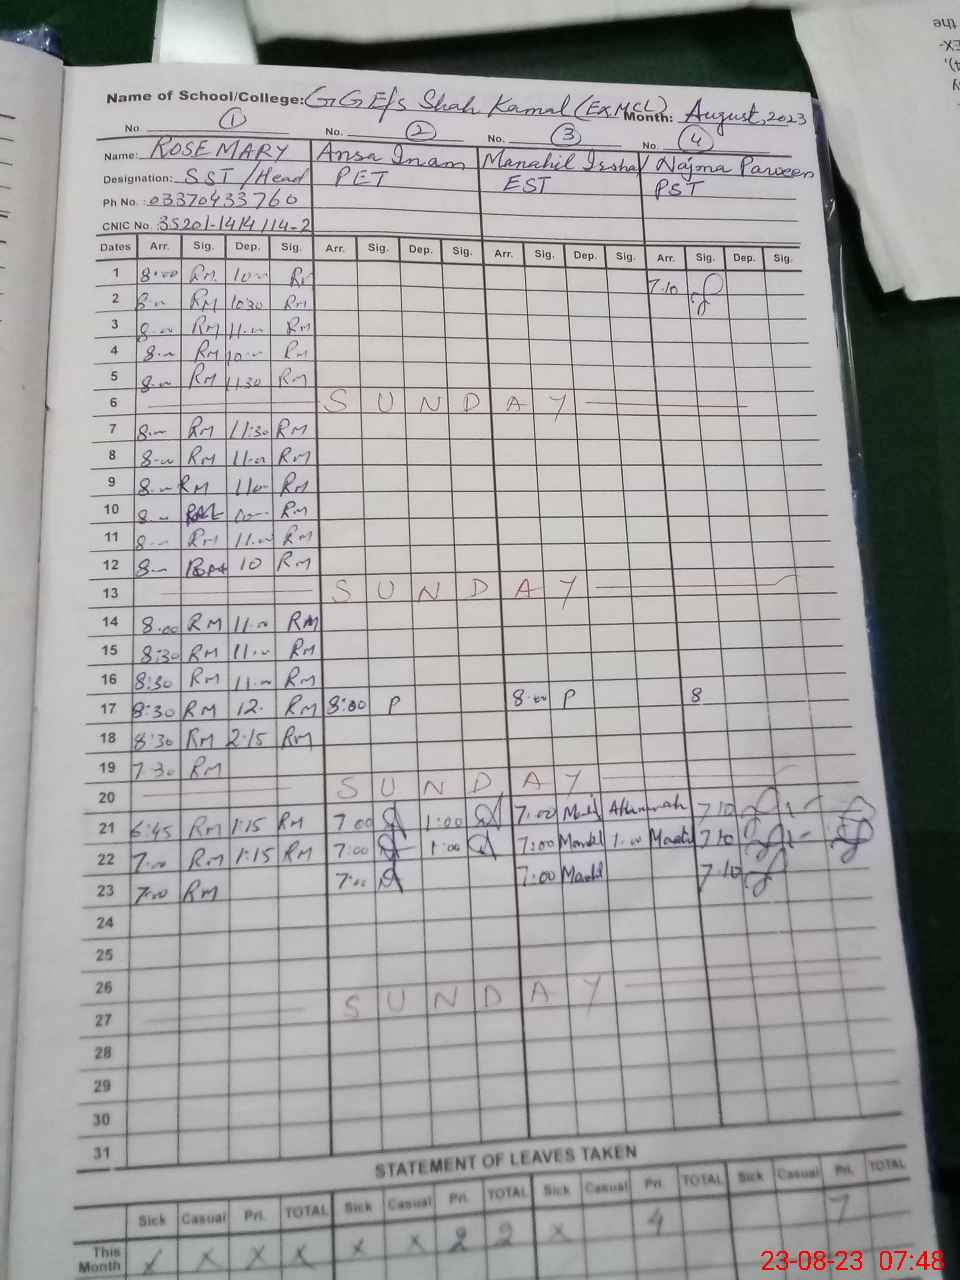 Name of School/College: GGE/S Shah Kamal (Ex.MCL) Month: August, 2023
No. 1 No. 2 No. 3 No. 4
Name: ROSE MARY Ansa Inam Manahil Irshad Najma Parveen
Designation: SST/Head PET EST PST
Ph No.: 03370433760
CNIC No. 35201-1414114-2
Dates Arr. Sig. Dep. Sig. Arr. Sig. Dep. Sig. Arr. Sig. Dep. Sig. Arr. Sig. Dep. Sig.
1 8.00 RM 10.00 RM 7.10
2 8.00 RM 10:30 RM
3 8.00 RM 11.00 RM
4 8.00 RM 10.00 RM
5 8.00 RM 11.30 RM
6 SUNDAY
7 8.00 RM 11:30 RM
8 8.00 RM 11.00 RM
9 8.00 RM 11.00 RM
10 8.00 10.00 RM
11 8.00 RM 11.00 RM
12 8.00 10 RM
13 SUNDAY
14 8.00 RM 11.00 RM
15 8:30 RM 11.00 RM
16 8:30 RM 11.00 RM
17 8:30 RM 12. RM 8:00 P 8.00 P 8
18 8:30 RM 2:15 RM
19 7.30 RM
20 SUNDAY
21 6:45 RM 1:15 RM 7 00 1:00 7:00 7 10
22 7:00 RM 1:15 RM 7:00 1:00 7:00 1.00 7 10
23 7:00 RM 7:00 7:00 7.10
24
25
26
27 SUNDAY
28
29
30
31
STATEMENT OF LEAVES TAKEN
Sick Casual Pri. TOTAL Sick Casual Pri. TOTAL Sick Casual Pri. TOTAL Sick Casual Pri. TOTAL
This Month x x x x x x 2 2 x 4 7
23-08-23 07:48